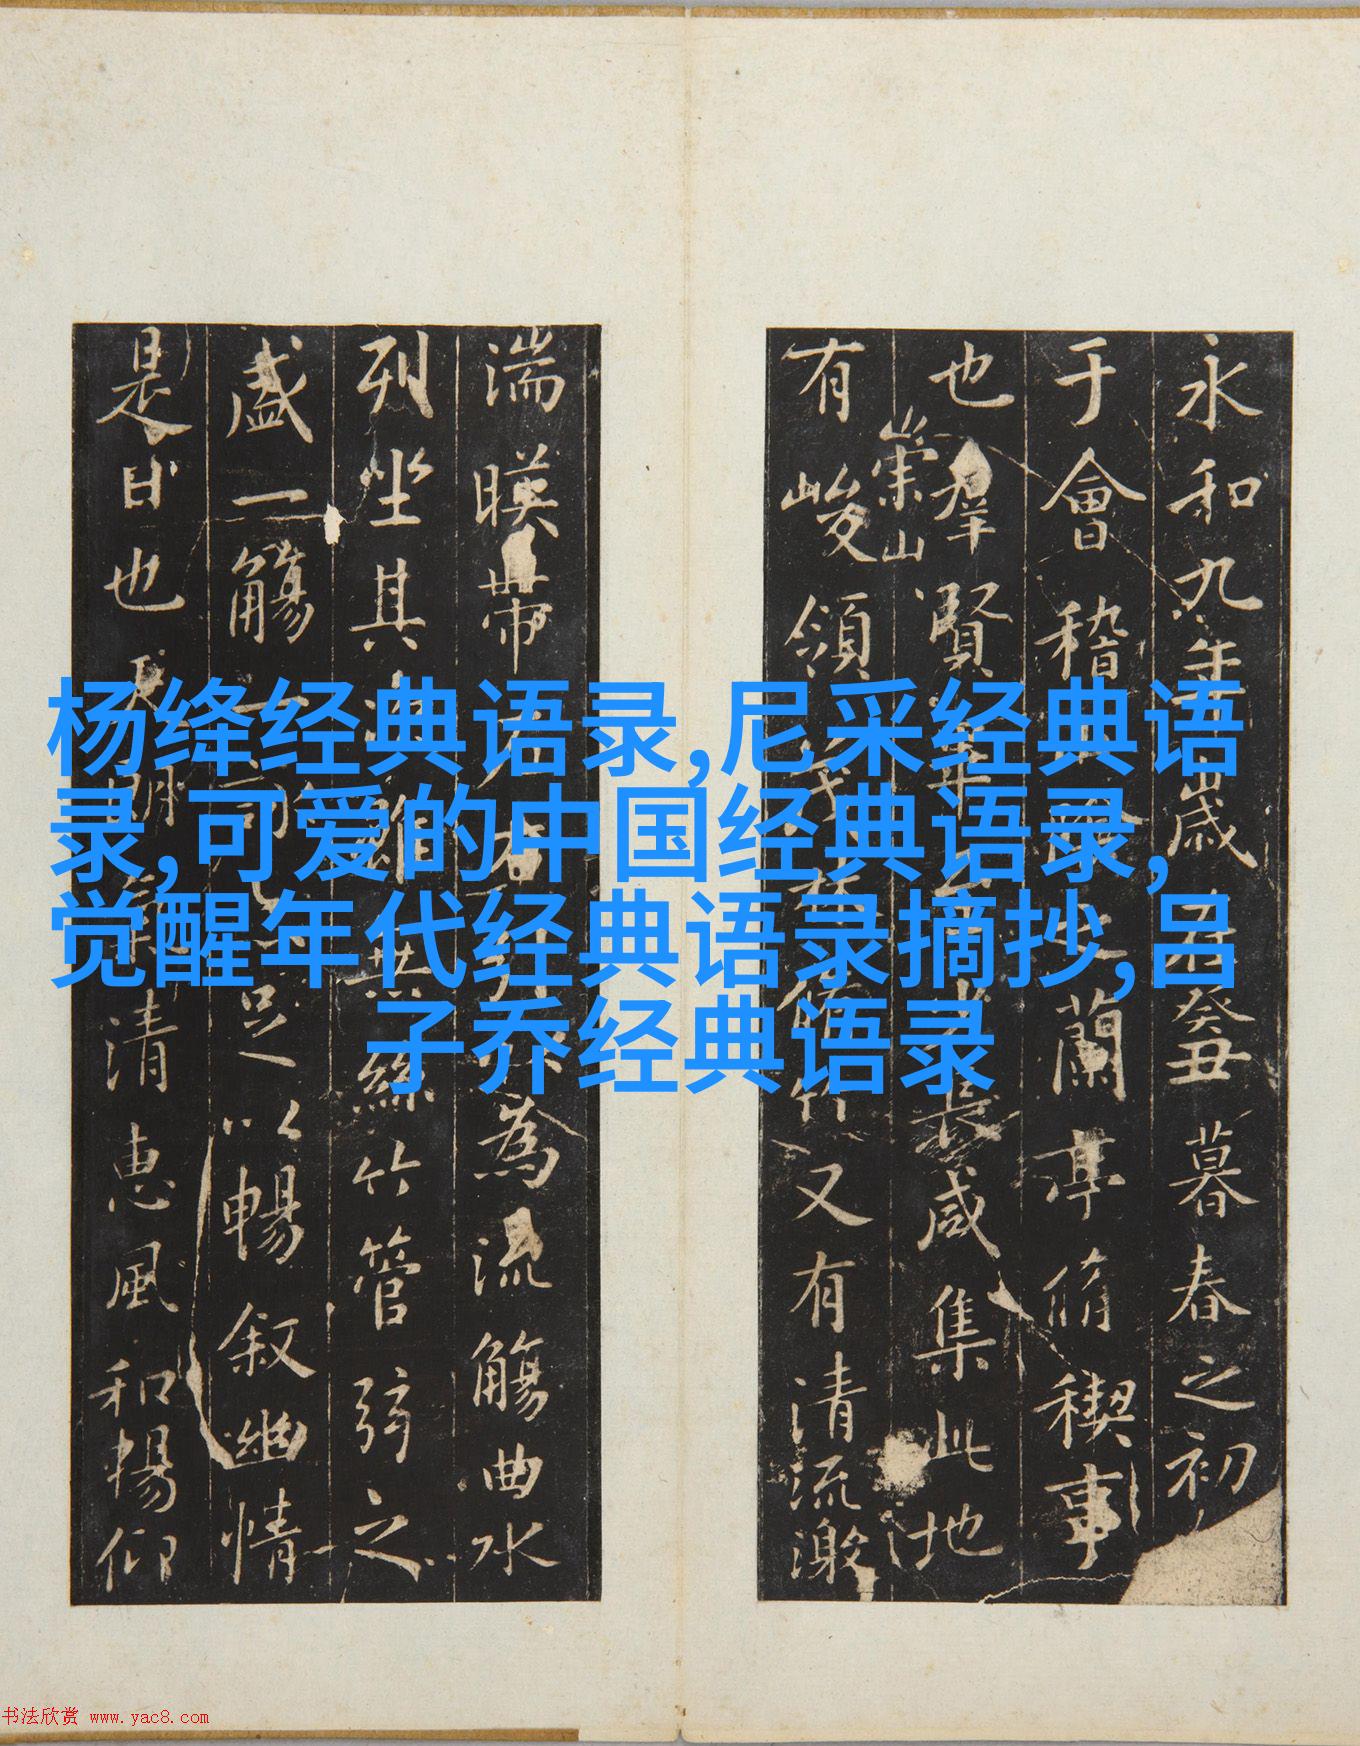 永和九年歲在癸丑暮春之初
于會稽山陰之蘭亭脩稧事
也羣賢畢至少長咸集此地
有崇山峻領茂林脩竹又有清流激
湍暎帶左右引以為流觴曲水
列坐其次雖無絲竹管弦之
盛一觴一詠亦足以暢叙幽情
是日也天朗氣清惠風和暢仰
杨绛经典语录,尼采经典语
录,可爱的中国经典语录,
觉醒年代经典语录摘抄,吕
子乔经典语录
书法欣赏 www.yac8.com